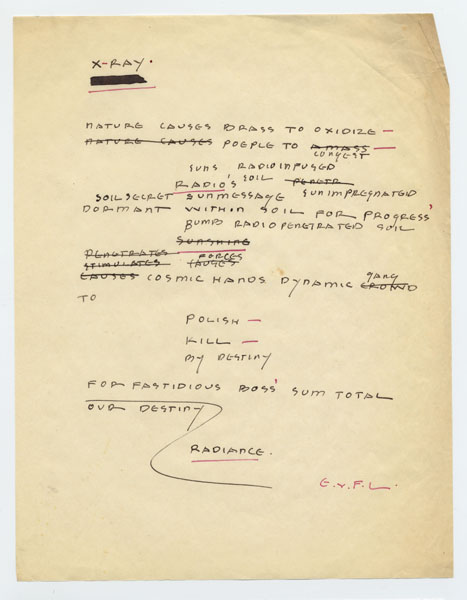 X-RAY.
NATURE CAUSES BRASS TO OXIDIZE —
NATURE CAUSES POEPLE TO A MASS
CONGEST
SUNS RADIOINFUSED
RADIO'S SOIL PENETR
SOILSECRET SUNMESSAGE SUNIMPREGNATED
DORMANT WITHIN SOIL FOR PROGRESS'
BUMPS RADIOPENETRATED SOIL
SUNSHINE
PENETRATES FORCES
STIMULATES CAUSES
CAUSES COSMIC HANDS DYNAMIC GANG CROWD
TO
POLISH —
KILL —
MY DESTINY
FOR FASTIDIOUS BOSS' SUM TOTAL
OUR DESTINY
RADIANCE.
E.v.F.L.